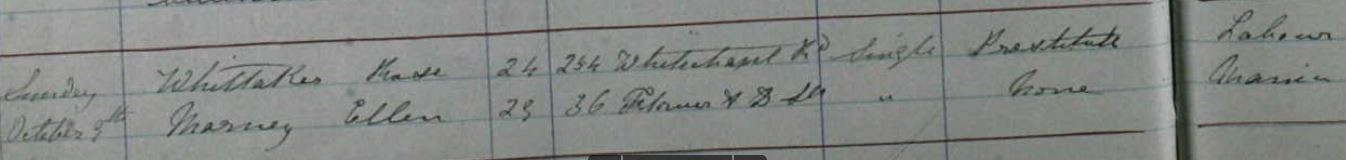 Sunday Whittaker Rose 24 254 Whitechapel Rd Single Prostitute Labour
October 9th Marney Ellen 23 36 & D St " None